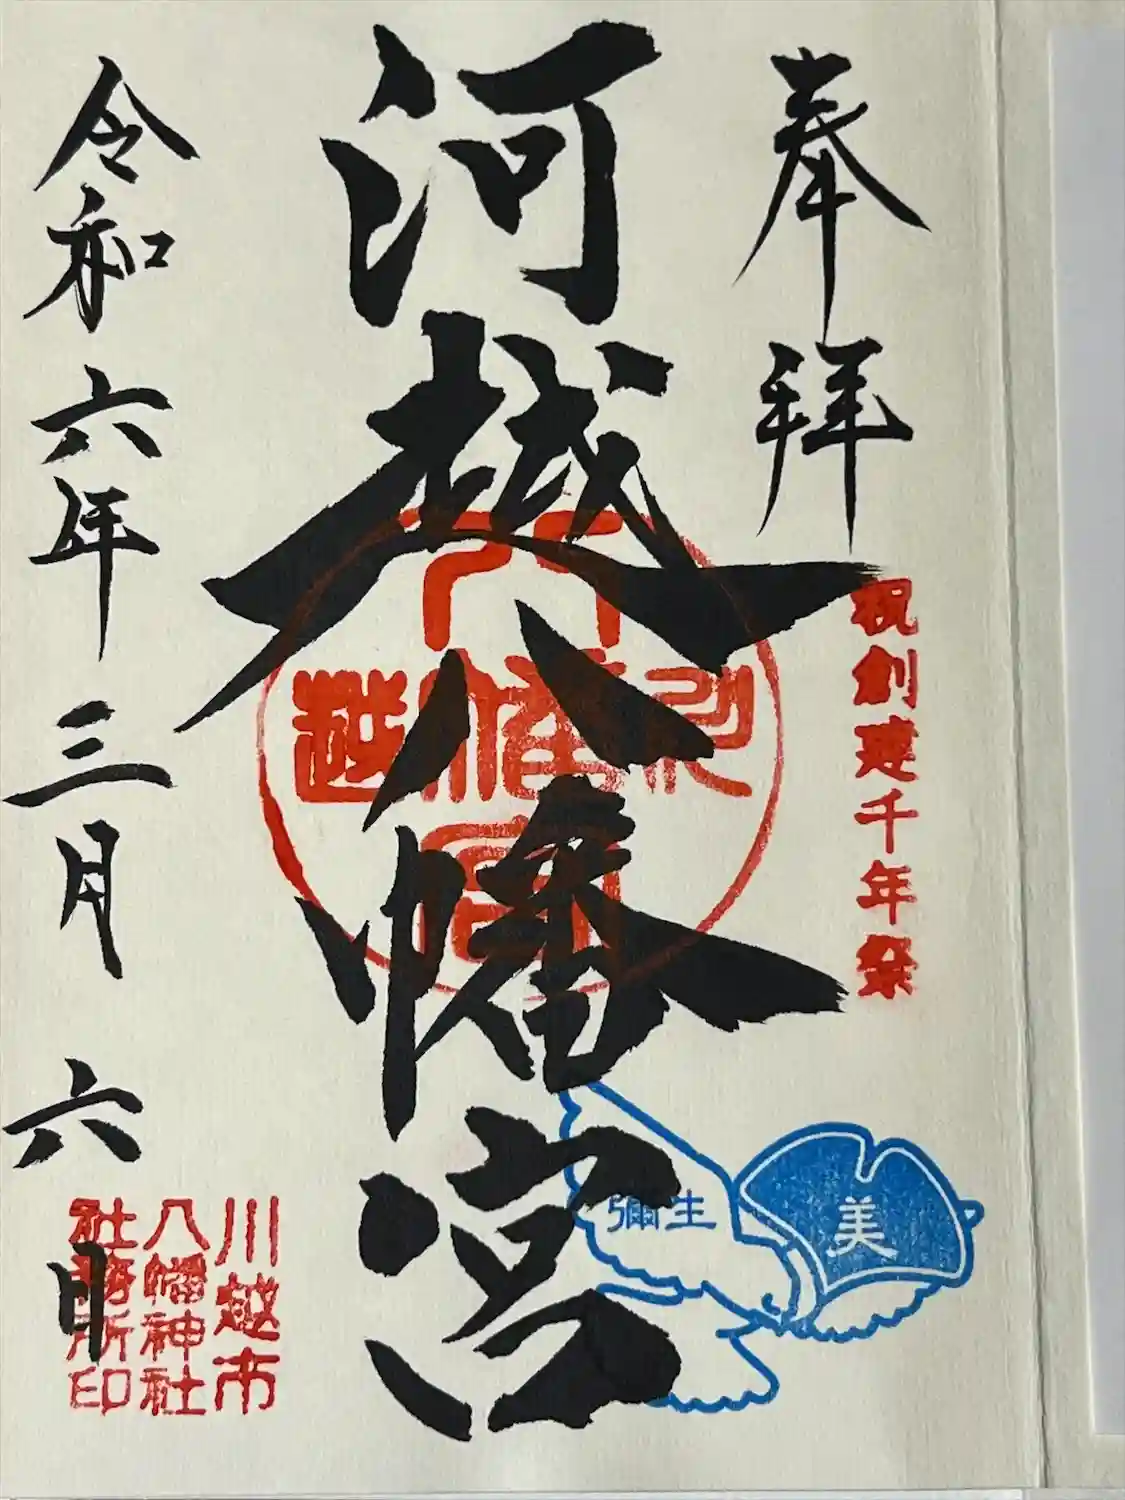 奉拝
祝創建千年祭
河越八幡宮
八幡宮
越
彌生
美
令和六年三月六日
川越市
八幡神社
社務所印